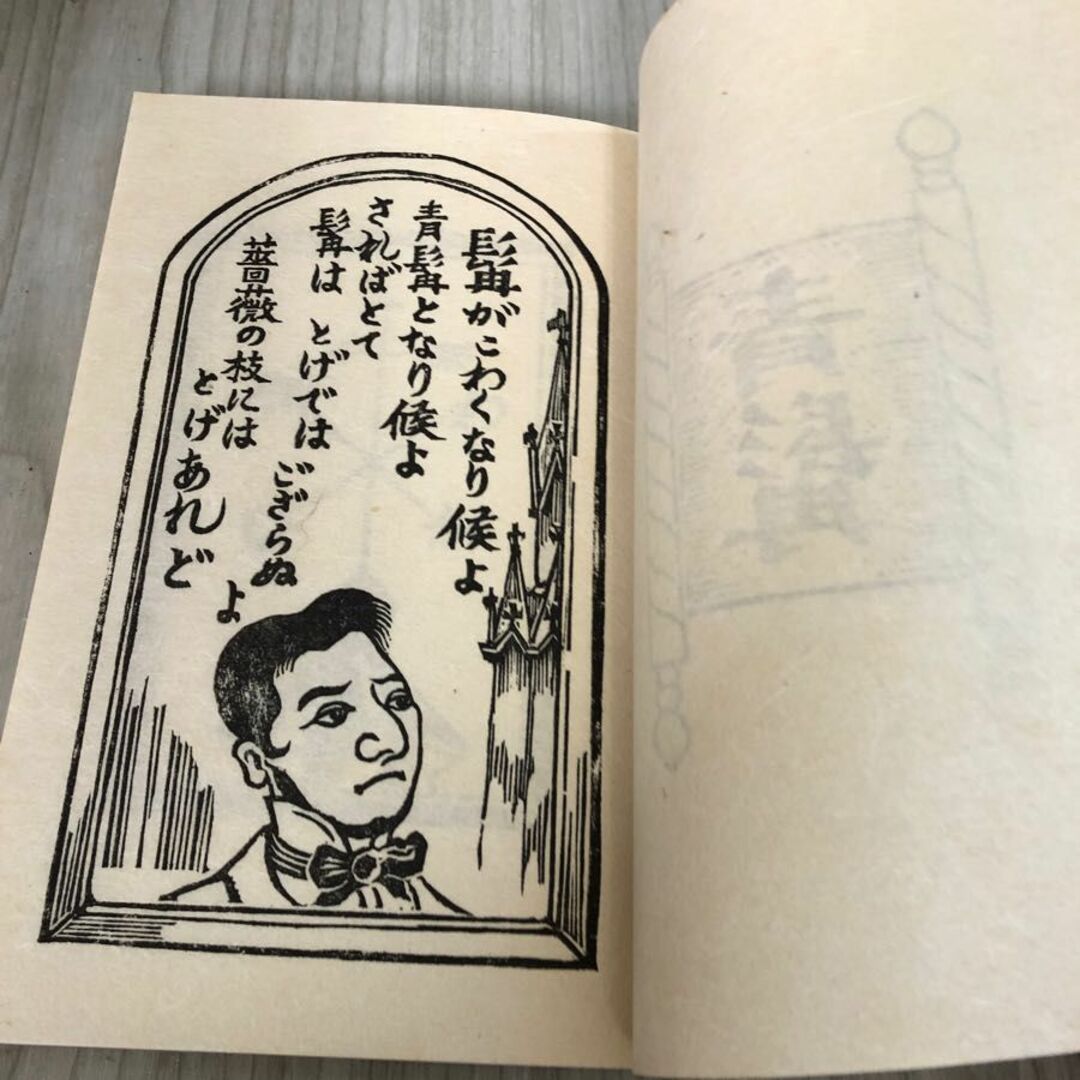 髯がこわくなり候よ
青髯となり候よ
さればとて
髯は とげでは ござらぬ よ
薔薇の枝には
とげあれど
青髯